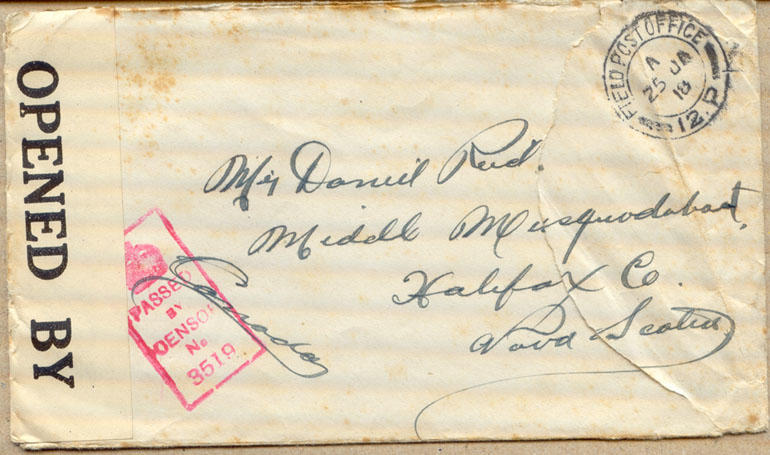 OPENED BY
FIELD POST OFFICE
A
25 JA
18
12.P
Mrs Daniel Reid.
Middle Musquodoboit,
Halifax Co.
Nova Scotia
Canada
PASSED
BY
CENSOR
No
3519